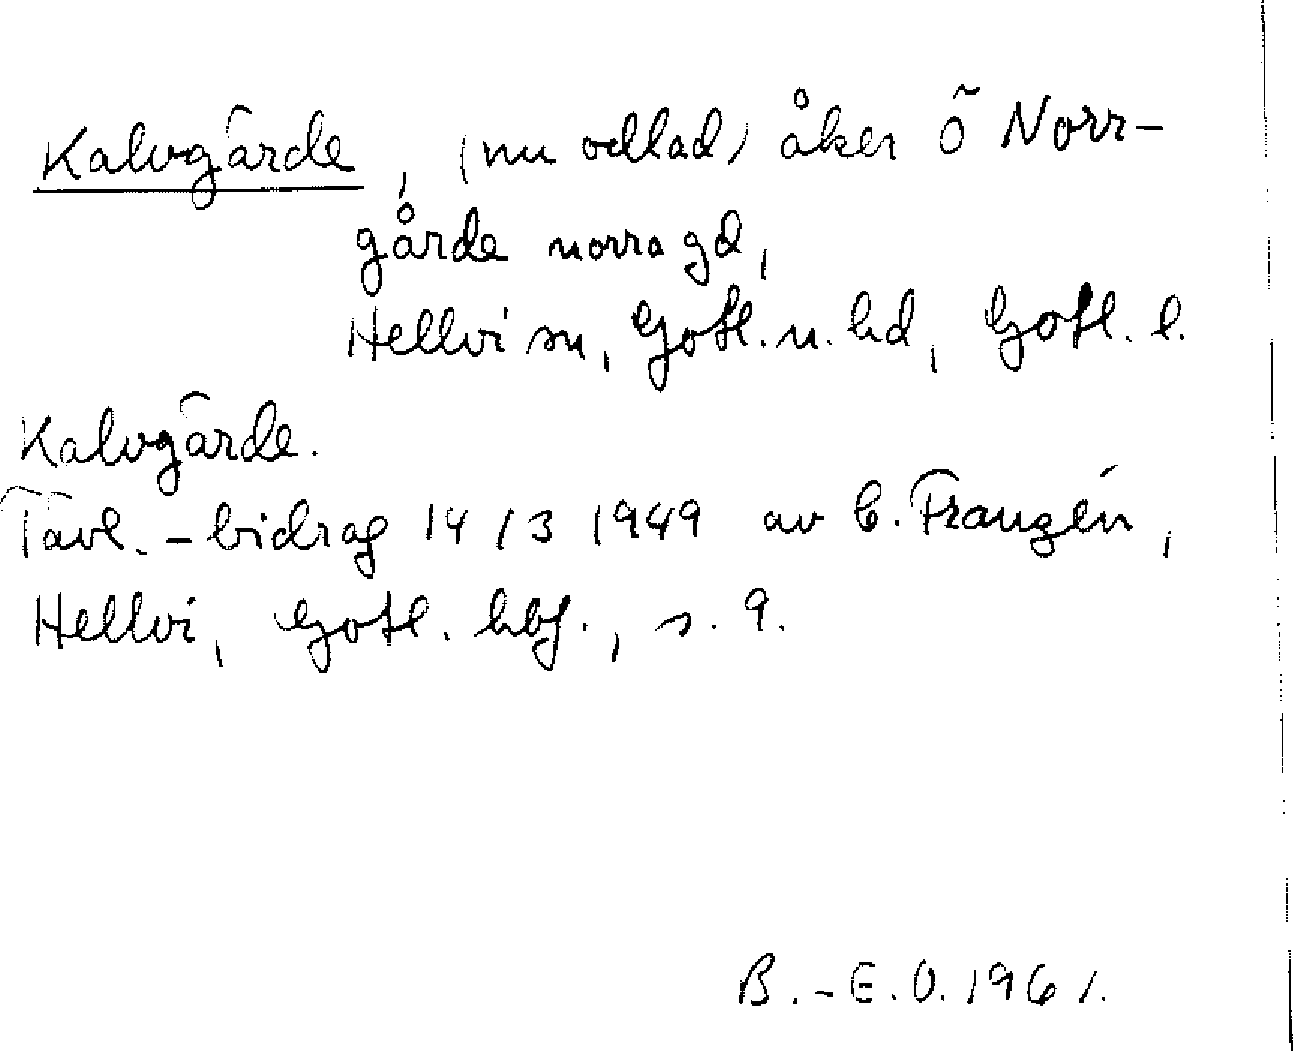 Kalvgärde, (nu odlad) åker Ö Norr-
gårde norra gd,
Hellvi sn, Gotl. n. hd, Gotl. l.
Kalvgärde.
Tävl.-bidrag 14/3 1949 av C. Franzén,
Hellvi, Gotl. hbf., s. 9.
B.-E.O. 1961.